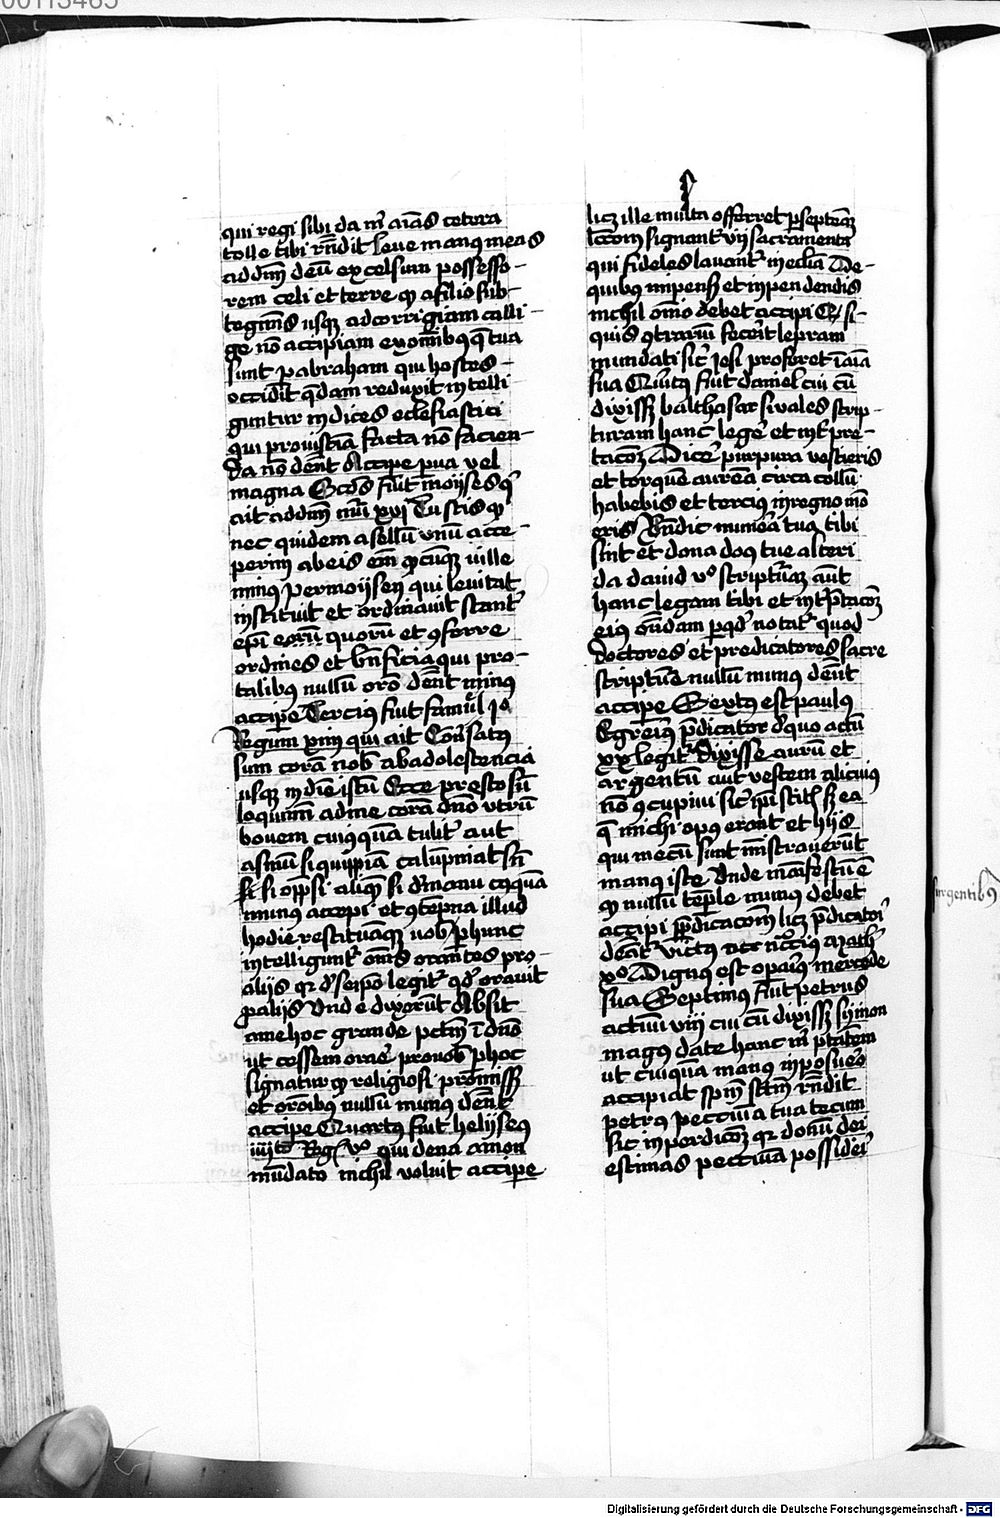 00113465
qui regi sibi da m̄ aīas cetera
tolle tibi rn̄dit leuo manus meas
ad dn̄m deū excelsum possesso-
rem celi et terre qꝫ a filo sub-
tegminis usqꝫ ad corrigiam calli-
ge nō accipiam ex om̄ibꝫ que tua
sunt ꝑ abraham qui hostes
occidit qͥdam reduxit intelli
guntur iudices ecclesiastici
qui pro iusticia facta nō facien-
da nō debent accipe ꝑua vel
magna Scds̄ fuit moijses qͥ
ait ad dn̄m nūi xvi Tu scis qꝫ
nec quidem asellū vnū acce-
perim ab eis cuille
minus per moijsen qui leuitas
instituit et ordinauit
ep̄i eorū quorū et ꝯferre
ordines et bn̄ficia qui pro
talibꝫ nullū debent minus
accipe Tercius fuit samuel
Regum xii qui ait Conuersatus
sum corā nobis ab adolestencia
usqꝫ in diē istū Ecce presto sū
loquimini ad me corā dn̄o vtrū
bouem cuiusquā tulit aut
asinū si quippiā calūpniat sū
si si opp̄si aliqꝫ si de manu cuqͥuā
munus accepi et illud
hodie restituāqꝫ uob̄ per hunc
intelligunt̄ om̄s orantes pro
alijs qr de seipō legit̄ qd̄ orauit
ꝓ alijs Vnde dixerūt Absit
a me hoc grande pctm̄ ī dn̄o
ut cessem orare pro uob̄ ꝑ hoc
signatur qꝫ religiosi
et orōibꝫ nullū munus debent
accipe Quartus fuit helijseus
iiijto Reg v° qui dena amon
mūdato nichil voluit accipe
licꝫ ille multa offerret
signant̄ vij sacramenta
qui fideles lauant̄ De
quibus impensis et inpendendis
nichil om̄o debet accipi Qr si
quis ꝯtrariū fecerit lepram
mundati sic̄ iesi proferet ī aīa
sua Quintꝫ fuit daniel cui cū
dixissꝫ balthasar si vales scrip-
turam hanc legere et int̄pre-
tacōꝫ Dicere purpura vestieris
et torquē aureā circa collū
habebis et tercius in regno meo
eris Rn̄dit munera tua tibi
sint et dona domus tue alteri
da dauid v° scripturaꝫ aut̄
hanc legam tibi et int̄p̄tacōꝫ
eius on̄dam per qd̄ notat̄ quod
doctores et predicatores sacre
scripture nullū munus debent
accipe Sextus est paulus
Egregius p̄dicator de quo actū
xx legit̄ dixisse aurū et
argentū aut vestem alicuius
nō ꝯcupiui sic̄ ip̄i scitis qꝫ ea
q̄ michi opus erant et hijs
qui mecū sunt mīstrauerūt
manus iste Vnde manifestū ē
qꝫ nullū munus debet
accipi p̄dicacōm licꝫ p̄dicatori
debeat̄ victus math
x° Dignus est opar̄ius mercede
sua Septimus fuit petrus
actuū viij cui cū dixissꝫ sijmon
magus date hanc m̄ ptātem
ut cuicūqꝫ manus inposuero
accipiat spm̄ sc̄tm rn̄dit
petrus peccunia tua tecum
sit in perdicōꝫ qr donū dei
estimas peccunia possideri
surgentibꝫ
Digitalisierung gefördert durch die Deutsche Forschungsgemeinschaft - DFG